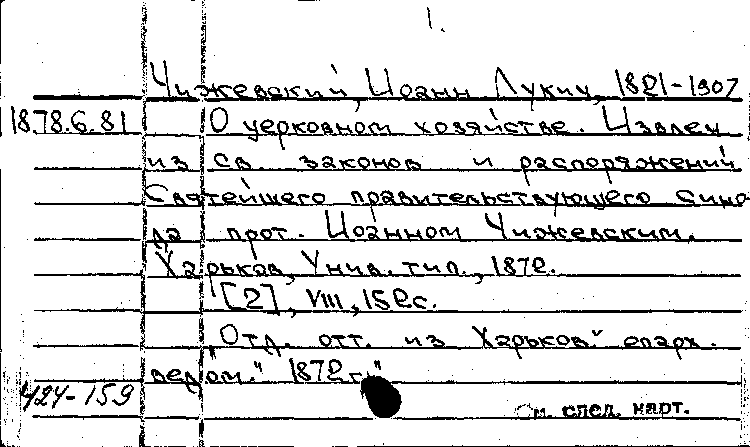 1.
Чижевский, Иоанн Лукич, 1821-1907
1878.6.81 О церковном хозяйстве. Извлеч
из св. законов и распоряжений
Святейшего правительствующего Сино-
да прот. Иоанном Чижевским.
Харьков, Унив. тип., 1872.
[2], VIII, 152с.
"Отд. отт. из Харьков." епарх.
ведом." 1872г."
424-159
См. след. карт.